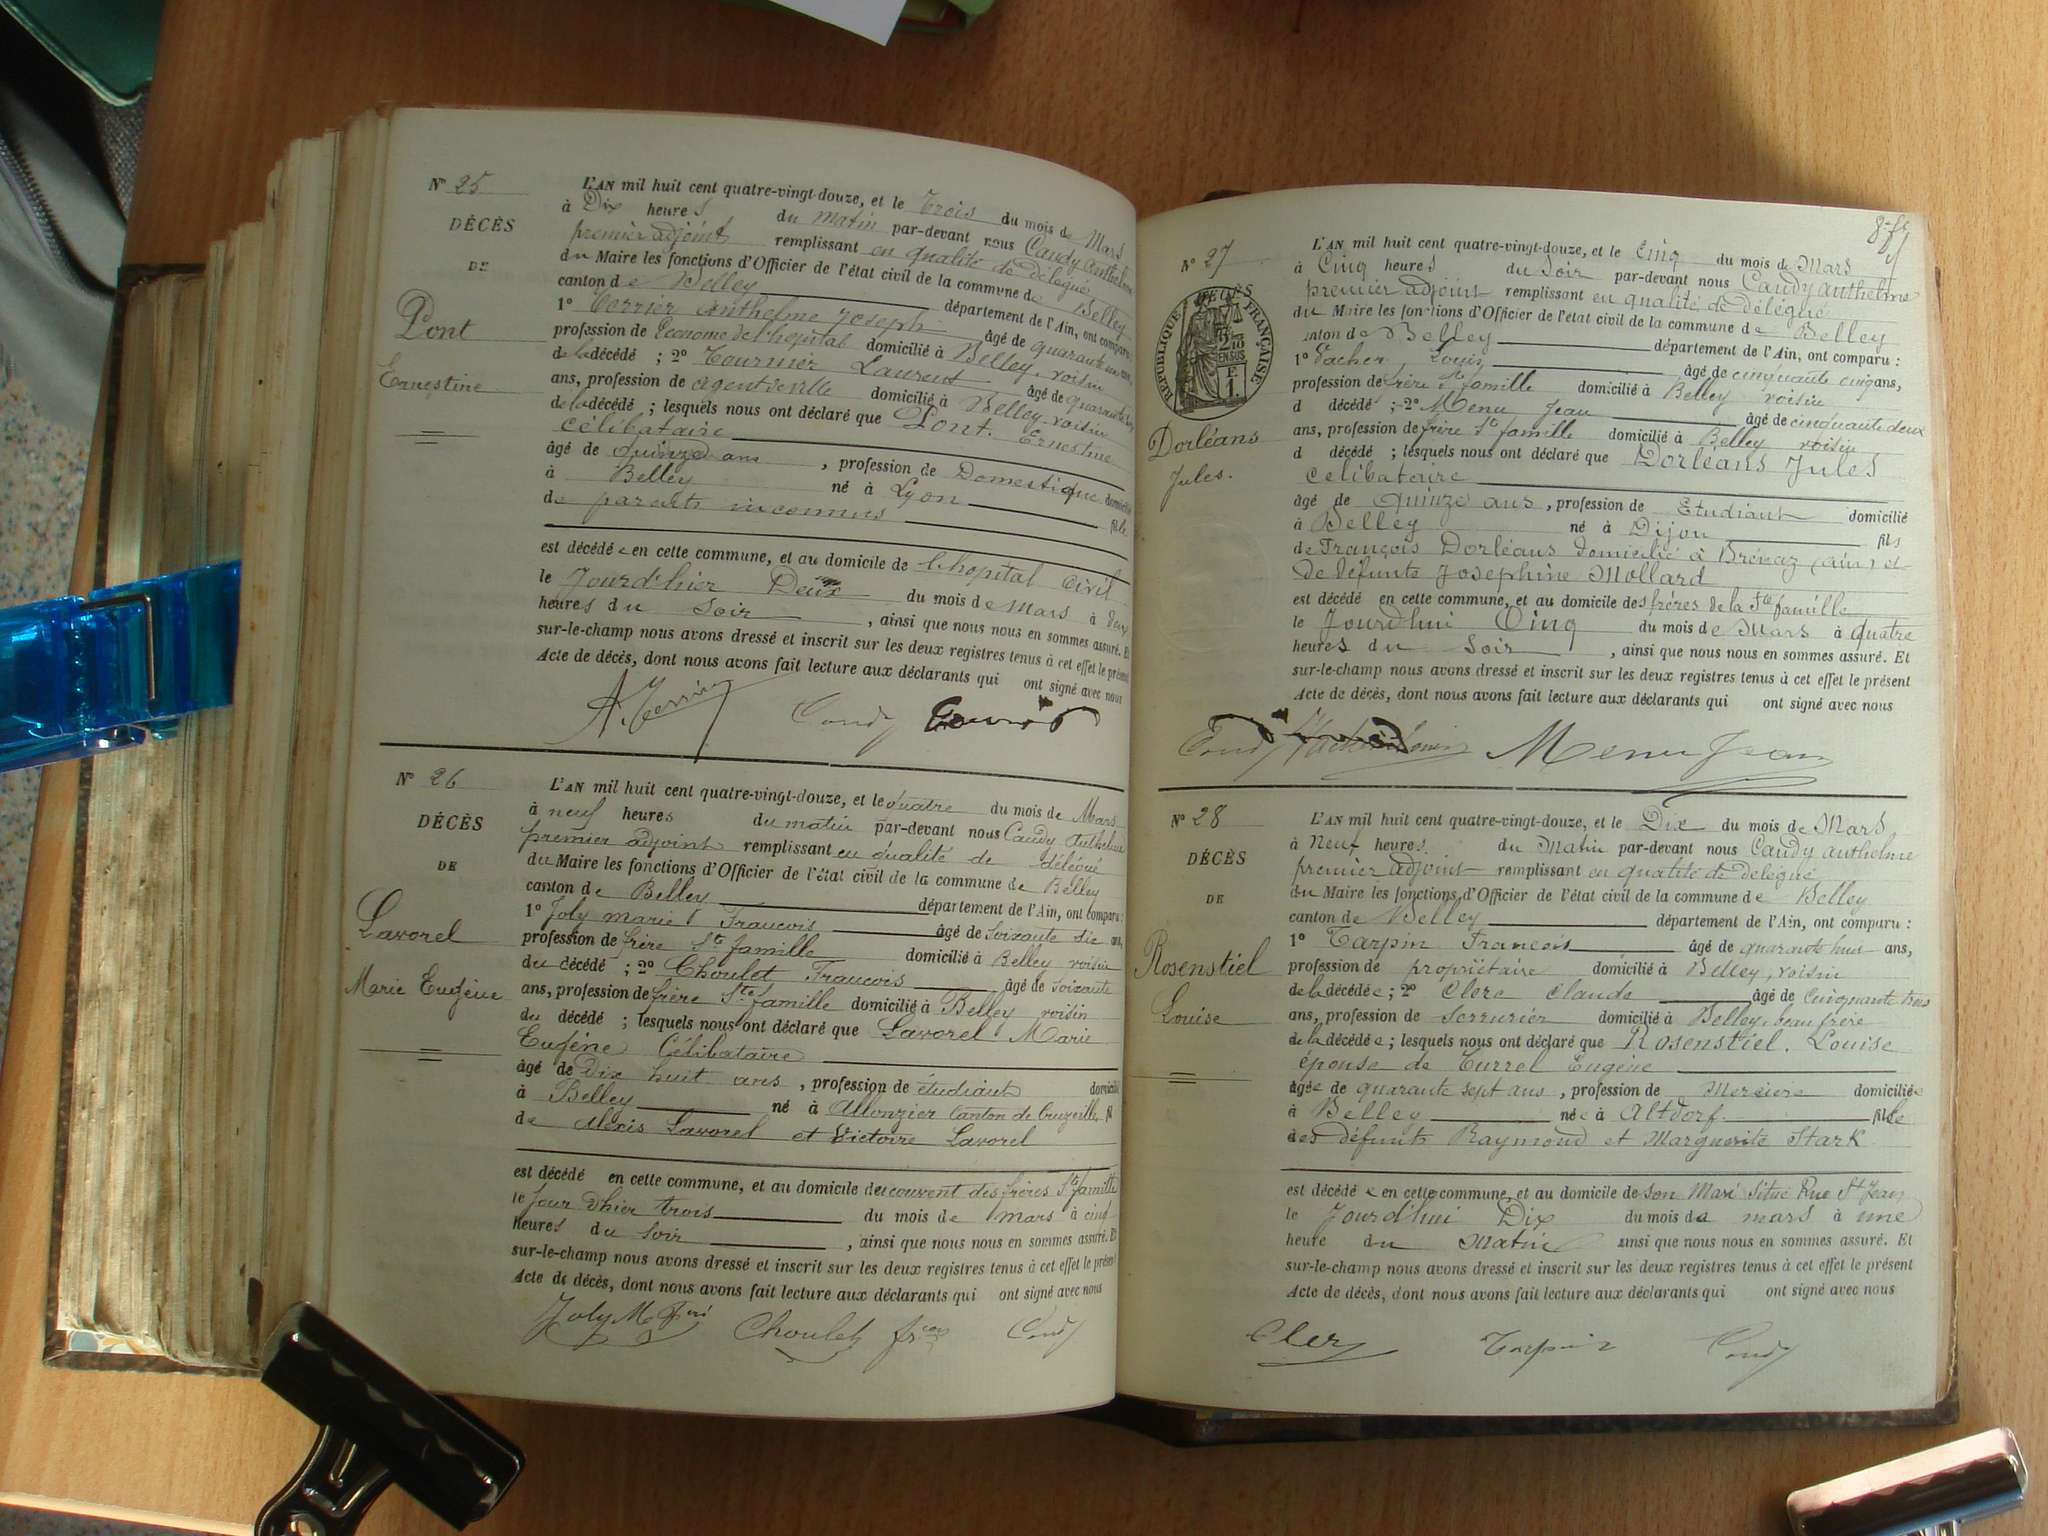 N° 25
DÉCÈS
DE
Pont
Ernestine
L'AN mil huit cent quatre-vingt-douze, et le Trois du mois de Mars
à Dix heures du matin par-devant nous Caudy Anthelme
premier adjoint remplissant en qualité de délégué
du Maire les fonctions d'Officier de l'état civil de la commune de Belley
canton de Belley département de l'Ain, ont comparu :
1° Terrier Anthelme Joseph âgé de quarante
profession de Econome de l'hopital domicilié à Belley, voisin
de la décédé ; 2° Tournier Laurent âgé de quarante
ans, profession de agent de ville domicilié à Belley voisin
de la décédé ; lesquels nous ont déclaré que Pont. Ernestine
célibataire
âgé de quinze ans , profession de Domestique domicilié
à Belley né à Lyon fille
de parents inconnus
est décédé e en cette commune, et au domicile de l'hopital civil
le Jourd'hier Deux du mois de Mars à deux
heures du Soir , ainsi que nous nous en sommes assuré. Et
sur-le-champ nous avons dressé et inscrit sur les deux registres tenus à cet effet le présent
Acte de décès, dont nous avons fait lecture aux déclarants qui ont signé avec nous
A. Terrier Caudy
N° 26
DÉCÈS
DE
Lavorel
Marie Eugène
L'AN mil huit cent quatre-vingt-douze, et le quatre du mois de Mars
à neuf heures du matin par-devant nous Caudy Anthelme
premier adjoint remplissant en qualité de délégué
du Maire les fonctions d'Officier de l'état civil de la commune de Belley
canton de Belley département de l'Ain, ont comparu :
1° Joly marie François âgé de Soixante dix ans,
profession de frère Ste famille domicilié à Belley voisin
du décédé ; 2° Choulet François âgé de soixante
ans, profession de frère Ste famille domicilié à Belley voisin
du décédé ; lesquels nous ont déclaré que Lavorel Marie
Eugène Célibataire
âgé de Dix huit ans , profession de étudiant domicilié
à Belley né à Allonzier Canton de Cruzeille, fil
de Alexis Lavorel et Victoire Lavorel
est décédé en cette commune, et au domicile du couvent des frères Ste famille
le Jour d'hier trois du mois de mars à cinq
heures du soir , ainsi que nous nous en sommes assuré. Et
sur-le-champ nous avons dressé et inscrit sur les deux registres tenus à cet effet le présent
Acte de décès, dont nous avons fait lecture aux déclarants qui ont signé avec nous
Joly M. Choulet Caudy
N° 27
DÉCÈS
RÉPUBLIQUE FRANÇAISE
Dorléans
Jules.
L'AN mil huit cent quatre-vingt-douze, et le Cinq du mois de Mars
à Cinq heures du Soir par-devant nous Caudy anthelme
premier adjoint remplissant en qualité de délégué
du Maire les fonctions d'Officier de l'état civil de la commune de Belley
canton de Belley département de l'Ain, ont comparu :
1° Vacher Louis âgé de cinquante cinq ans,
profession de frère Ste famille domicilié à Belley voisin
d décédé ; 2° Menu Jean âgé de cinquante deux
ans, profession de frère Ste famille domicilié à Belley voisin
d décédé ; lesquels nous ont déclaré que Dorléans Jules
célibataire
âgé de quinze ans , profession de Etudiant domicilié
à Belley né à Dijon fils
de François Dorléans domicilié à Brénaz (ain) et
de défunte Joséphine Mollard
est décédé en cette commune, et au domicile des frères de la Ste famille
le Jourd'hui Cinq du mois de Mars à quatre
heures du Soir , ainsi que nous nous en sommes assuré. Et
sur-le-champ nous avons dressé et inscrit sur les deux registres tenus à cet effet le présent
Acte de décès, dont nous avons fait lecture aux déclarants qui ont signé avec nous
Caudy Vacher Louis Menu Jean
N° 28
DÉCÈS
DE
Rosenstiel
Louise
L'AN mil huit cent quatre-vingt-douze, et le Dix du mois de Mars
à Neuf heures. du Matin par-devant nous Caudy anthelme
premier adjoint remplissant en qualité de délégué
du Maire les fonctions d'Officier de l'état civil de la commune de Belley
canton de Belley département de l'Ain, ont comparu :
1° Tarpin François âgé de quarante huit ans,
profession de propriétaire domicilié à Belley, voisin
de la décédé e ; 2° Clerc Claude âgé de Cinquante trois
ans, profession de Serrurier domicilié à Belley, beau frère
de la décédé e ; lesquels nous ont déclaré que Rosenstiel. Louise
épouse de Currel Eugène
âgée de quarante sept ans , profession de Mercière domiciliée
à Belley née à Altdorf. fille
des défunts Raymond et Marguerite Stark
est décédé e en cette commune, et au domicile de son Mari Situé Rue St Jean
le Jourd'hui Dix du mois de mars à une
heure du Matin ainsi que nous nous en sommes assuré. Et
sur-le-champ nous avons dressé et inscrit sur les deux registres tenus à cet effet le présent
Acte de décès, dont nous avons fait lecture aux déclarants qui ont signé avec nous
Clerc Tarpin Caudy